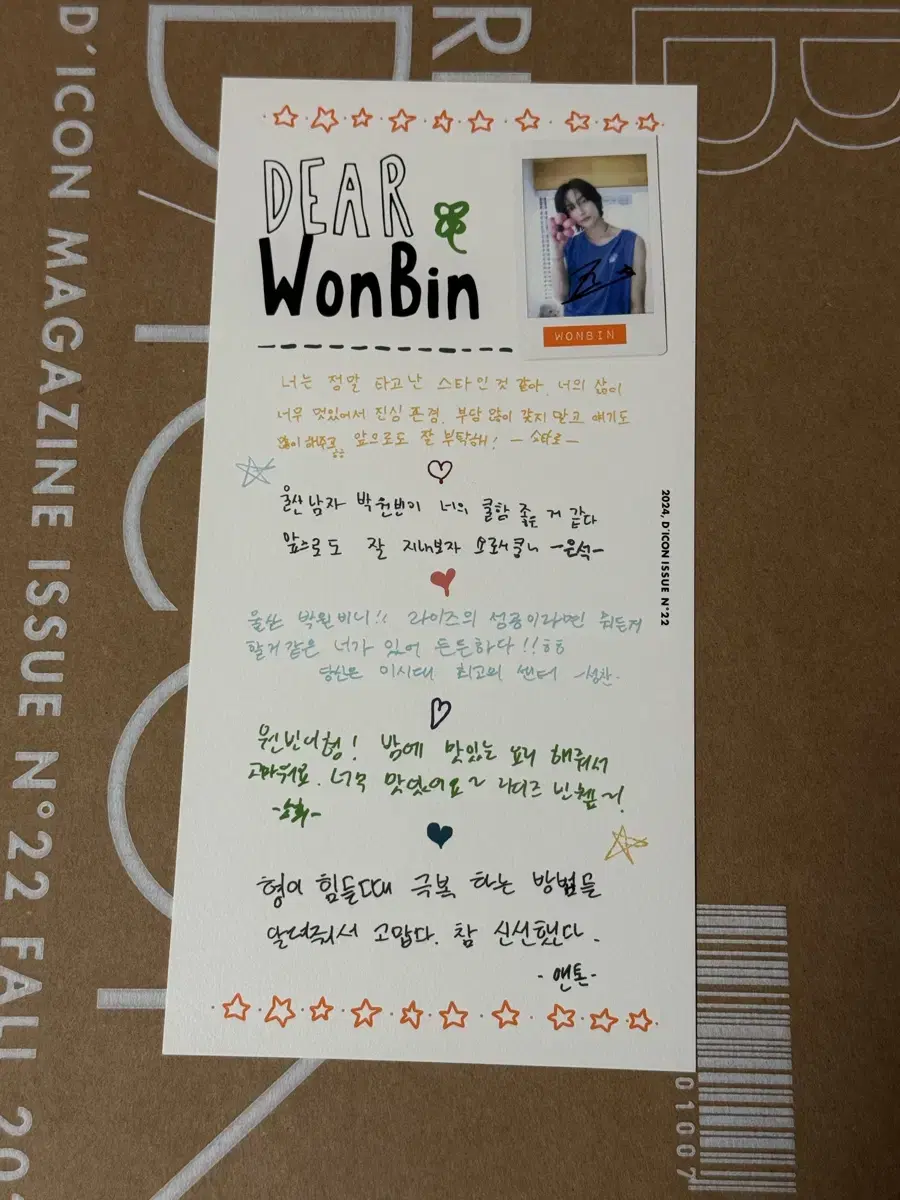 DEAR
WonBin
WONBIN
너는 정말 타고난 스타인것 같아. 너의 삶이
너무 멋있어서 진심 존경. 부담 많이 갖지 말고 얘기도
많이 해주고 앞으로도 잘 부탁해! - 쇼타로 -
울산남자 박원빈이 너의 쿨함 좋은 거 같다
앞으로도 잘 지내보자 -은석-
울산 박원비니!! 라이즈의 성공이라면 뭐든지
할거같은 너가 있어 든든하다!! ㅎㅎ
당신은 이시대 최고의 센터 -성찬-
원빈이형! 밤에 맛있는 요리 해줘서
고마워요. 너무 맛있었어요~ 라이즈
-소희-
형이 힘들때 극복 하는 방법을
알려줘서 고맙다. 참 신선했다.
- 앤톤 -
2024, D'ICON ISSUE N°22
D'ICON MAGAZINE ISSUE N°22 FALL 20
01007